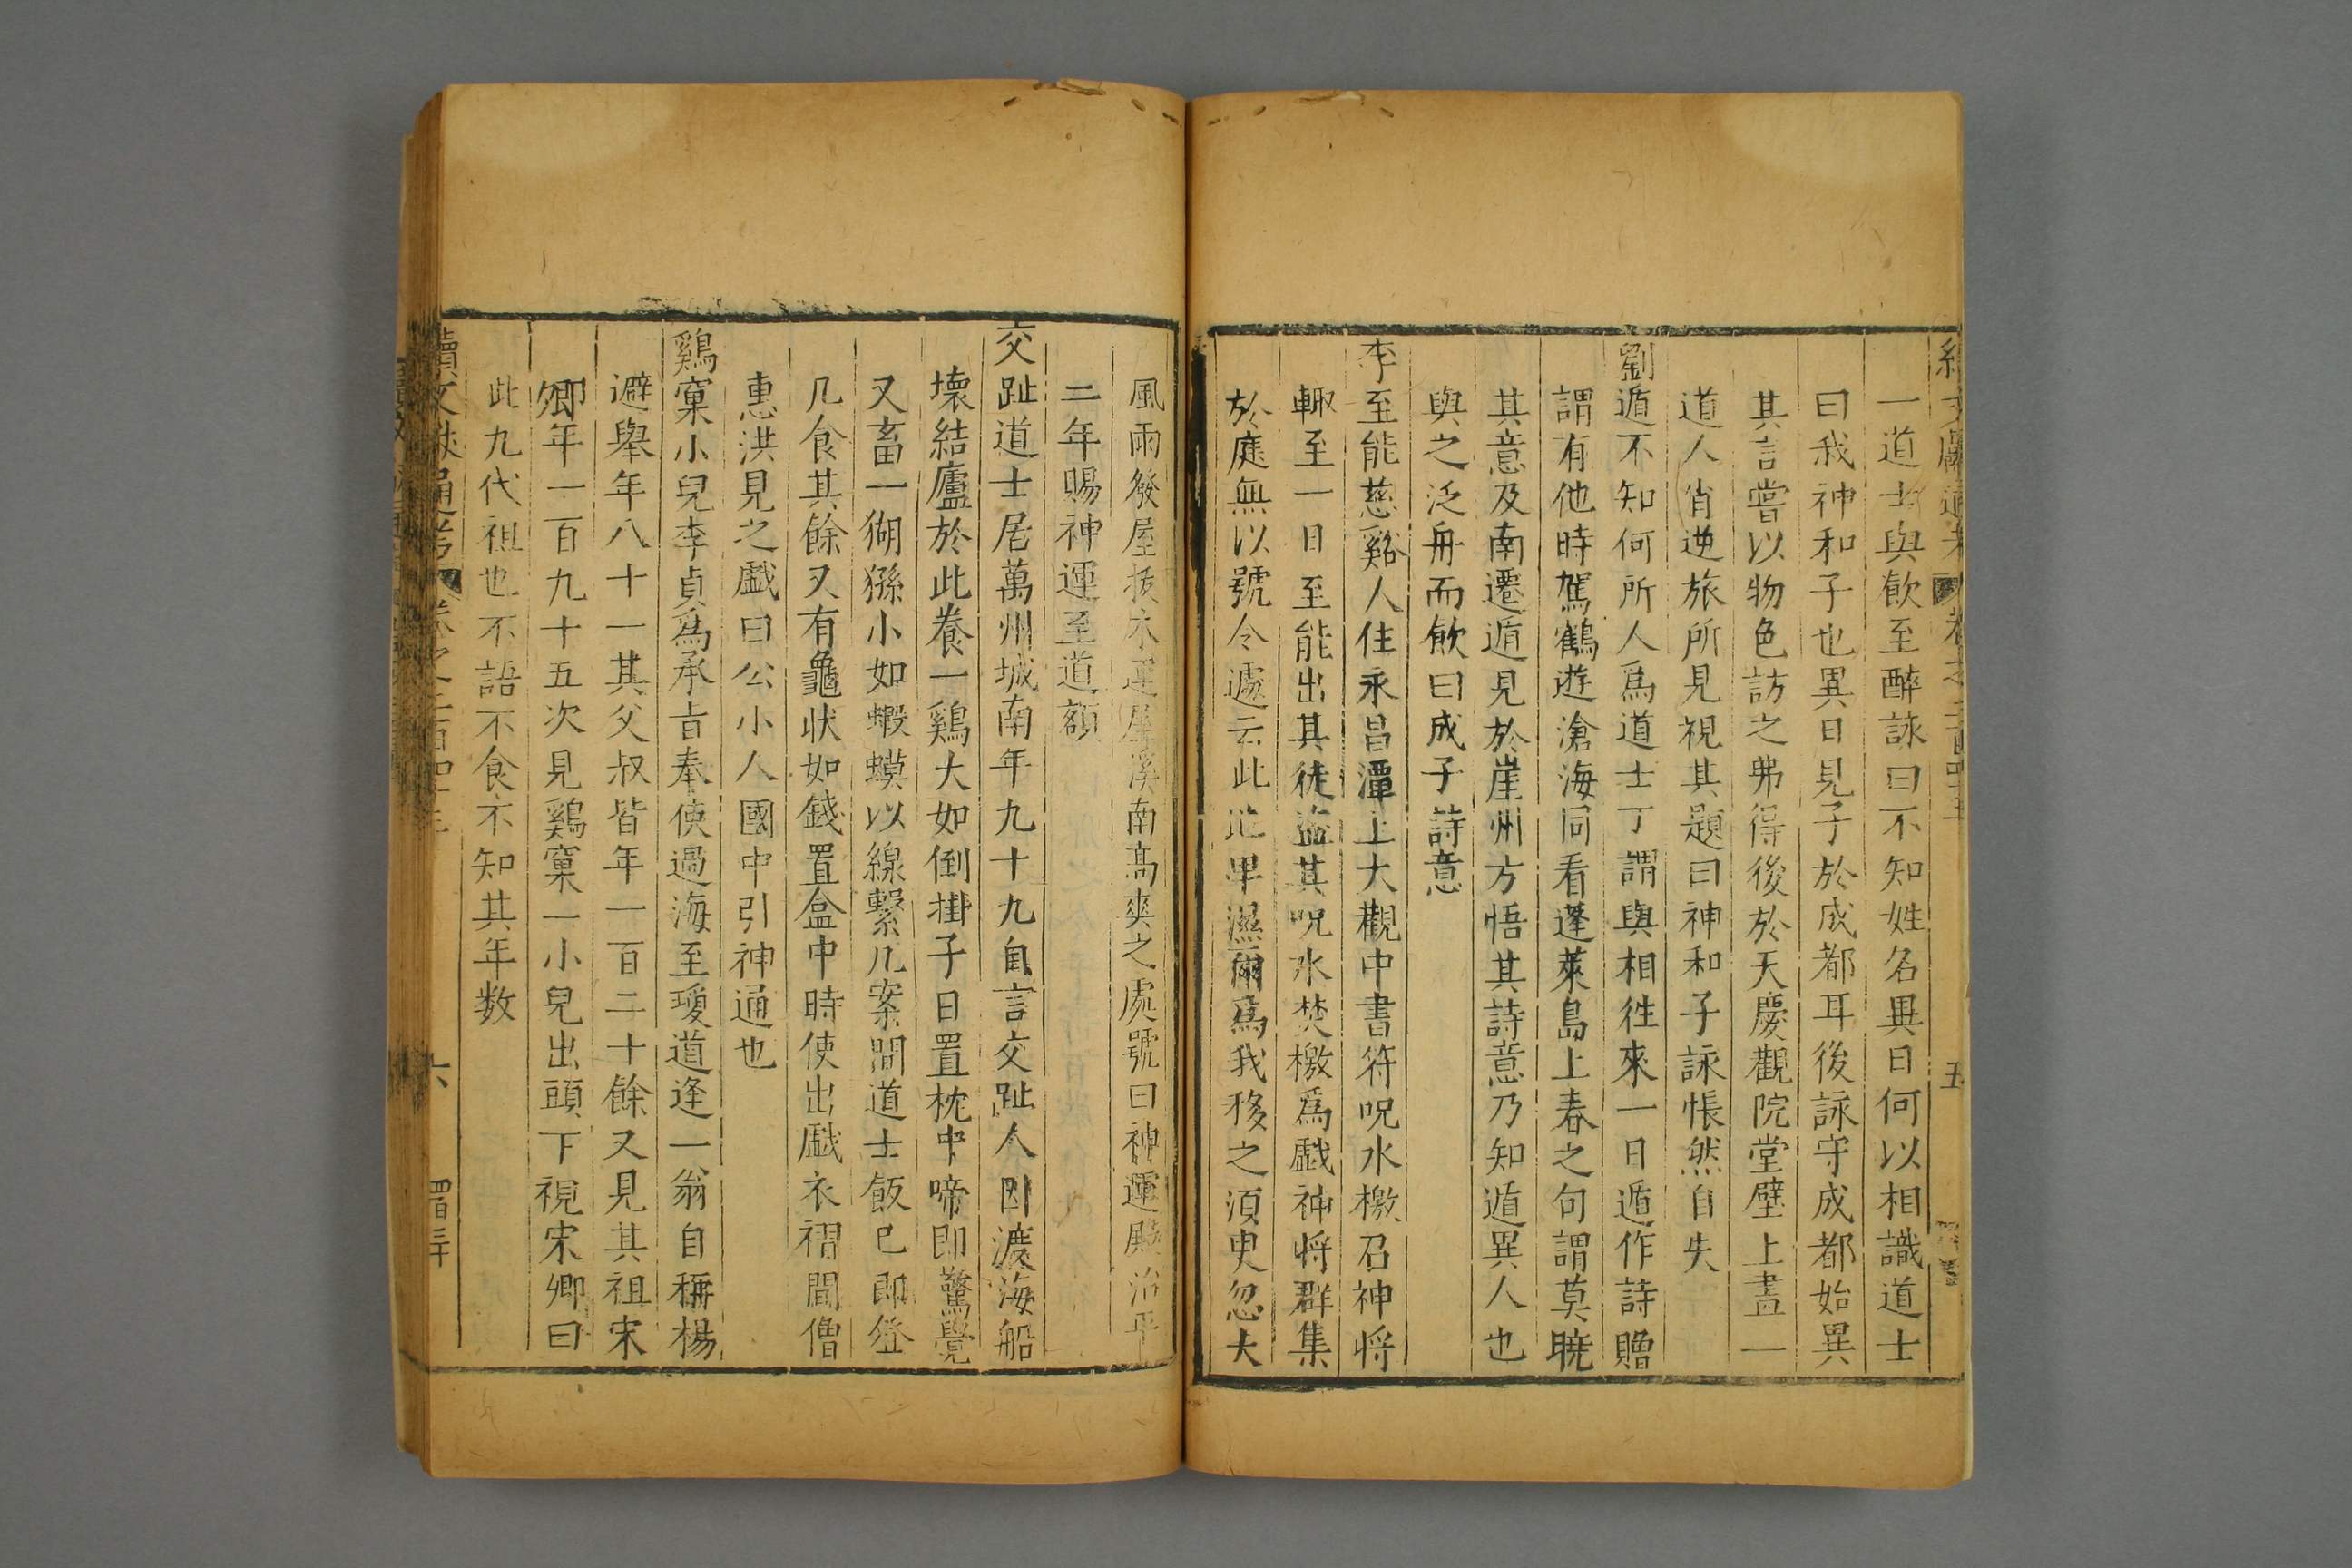 一道士與飲至醉詠曰不知姓名異日何以相識道士
曰我神和子也異日見子於成都耳後詠守成都始異
其言嘗以物色訪之弗得後於天慶觀院堂壁上畫一
道人肖逆旅所見視其題曰神和子詠悵然自失
劉遁不知何所人爲道士丁謂與相徃來一日遁作詩贈
謂有他時駕鶴遊滄海同看蓬萊島上春之句謂莫曉
其意及南遷遁見於崖州方悟其詩意乃知遁異人也
與之泛舟而飲曰成子詩意
李至能慈谿人住永昌潭上大觀中書符呪水檄召神将
輙至一日至能出其徒盗其呪水焚檄爲戯神将群集
於庭無以號令遽云此地卑濕爾爲我移之須臾忽大
風雨發屋拔木運屋溪南高爽之處號曰神運殿治平
二年賜神運至道額
交趾道士居萬州城南年九十九自言交趾人因渡海船
壞結廬於此養一鷄大如倒掛子日置枕中啼即驚覺
又畜一猢猻小如蝦蟆以線繫几案間道士飯已即登
几食其餘又有龜状如錢置盒中時使出戯衣褶間僧
惠洪見之戯曰公小人國中引神通也
鷄窠小兒李貞爲承旨奉使過海至瓊道逢一翁自稱楊
避舉年八十一其父叔皆年一百二十餘又見其祖宋
卿年一百九十五次見鷄窠一小兒出頭下視宋卿曰
此九代祖也不語不食不知其年数
續文獻通考 卷之二百四十三
六